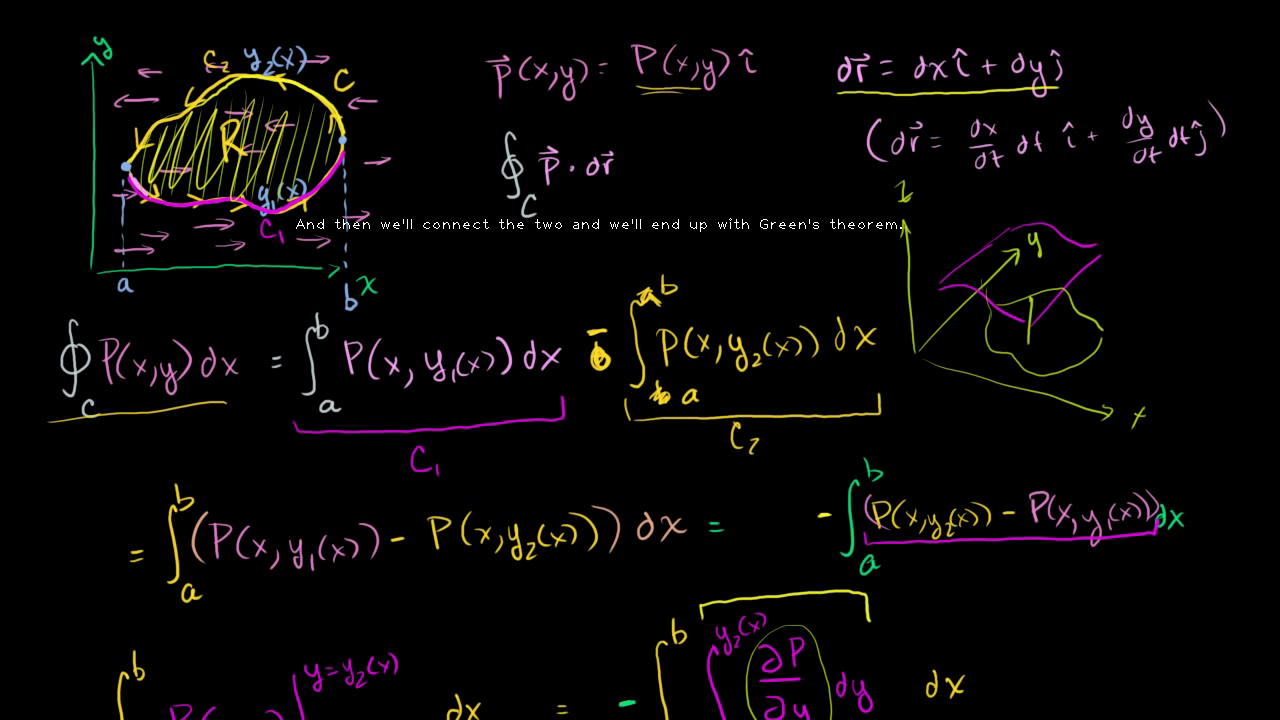 y
C₂ y₂(x) C
P⃗(x,y) = P(x,y) î
dr⃗ = dx î + dy ĵ
R
(dr⃗ = dx/dt dt î + dy/dt dt ĵ)
∮_C P⃗ · dr⃗
y₁(x)
C₁
And then we'll connect the two and we'll end up with Green's theorem.
a b x
z y x
∮_C P(x,y) dx = ∫_a^b P(x, y₁(x)) dx - ∫_a^b P(x, y₂(x)) dx
C₁ C₂
= ∫_a^b (P(x, y₁(x)) - P(x, y₂(x))) dx = - ∫_a^b (P(x, y₂(x)) - P(x, y₁(x))) dx
b y=y₂(x) dx = - ∫^b ∫^y₂(x) ∂P/∂y dy dx